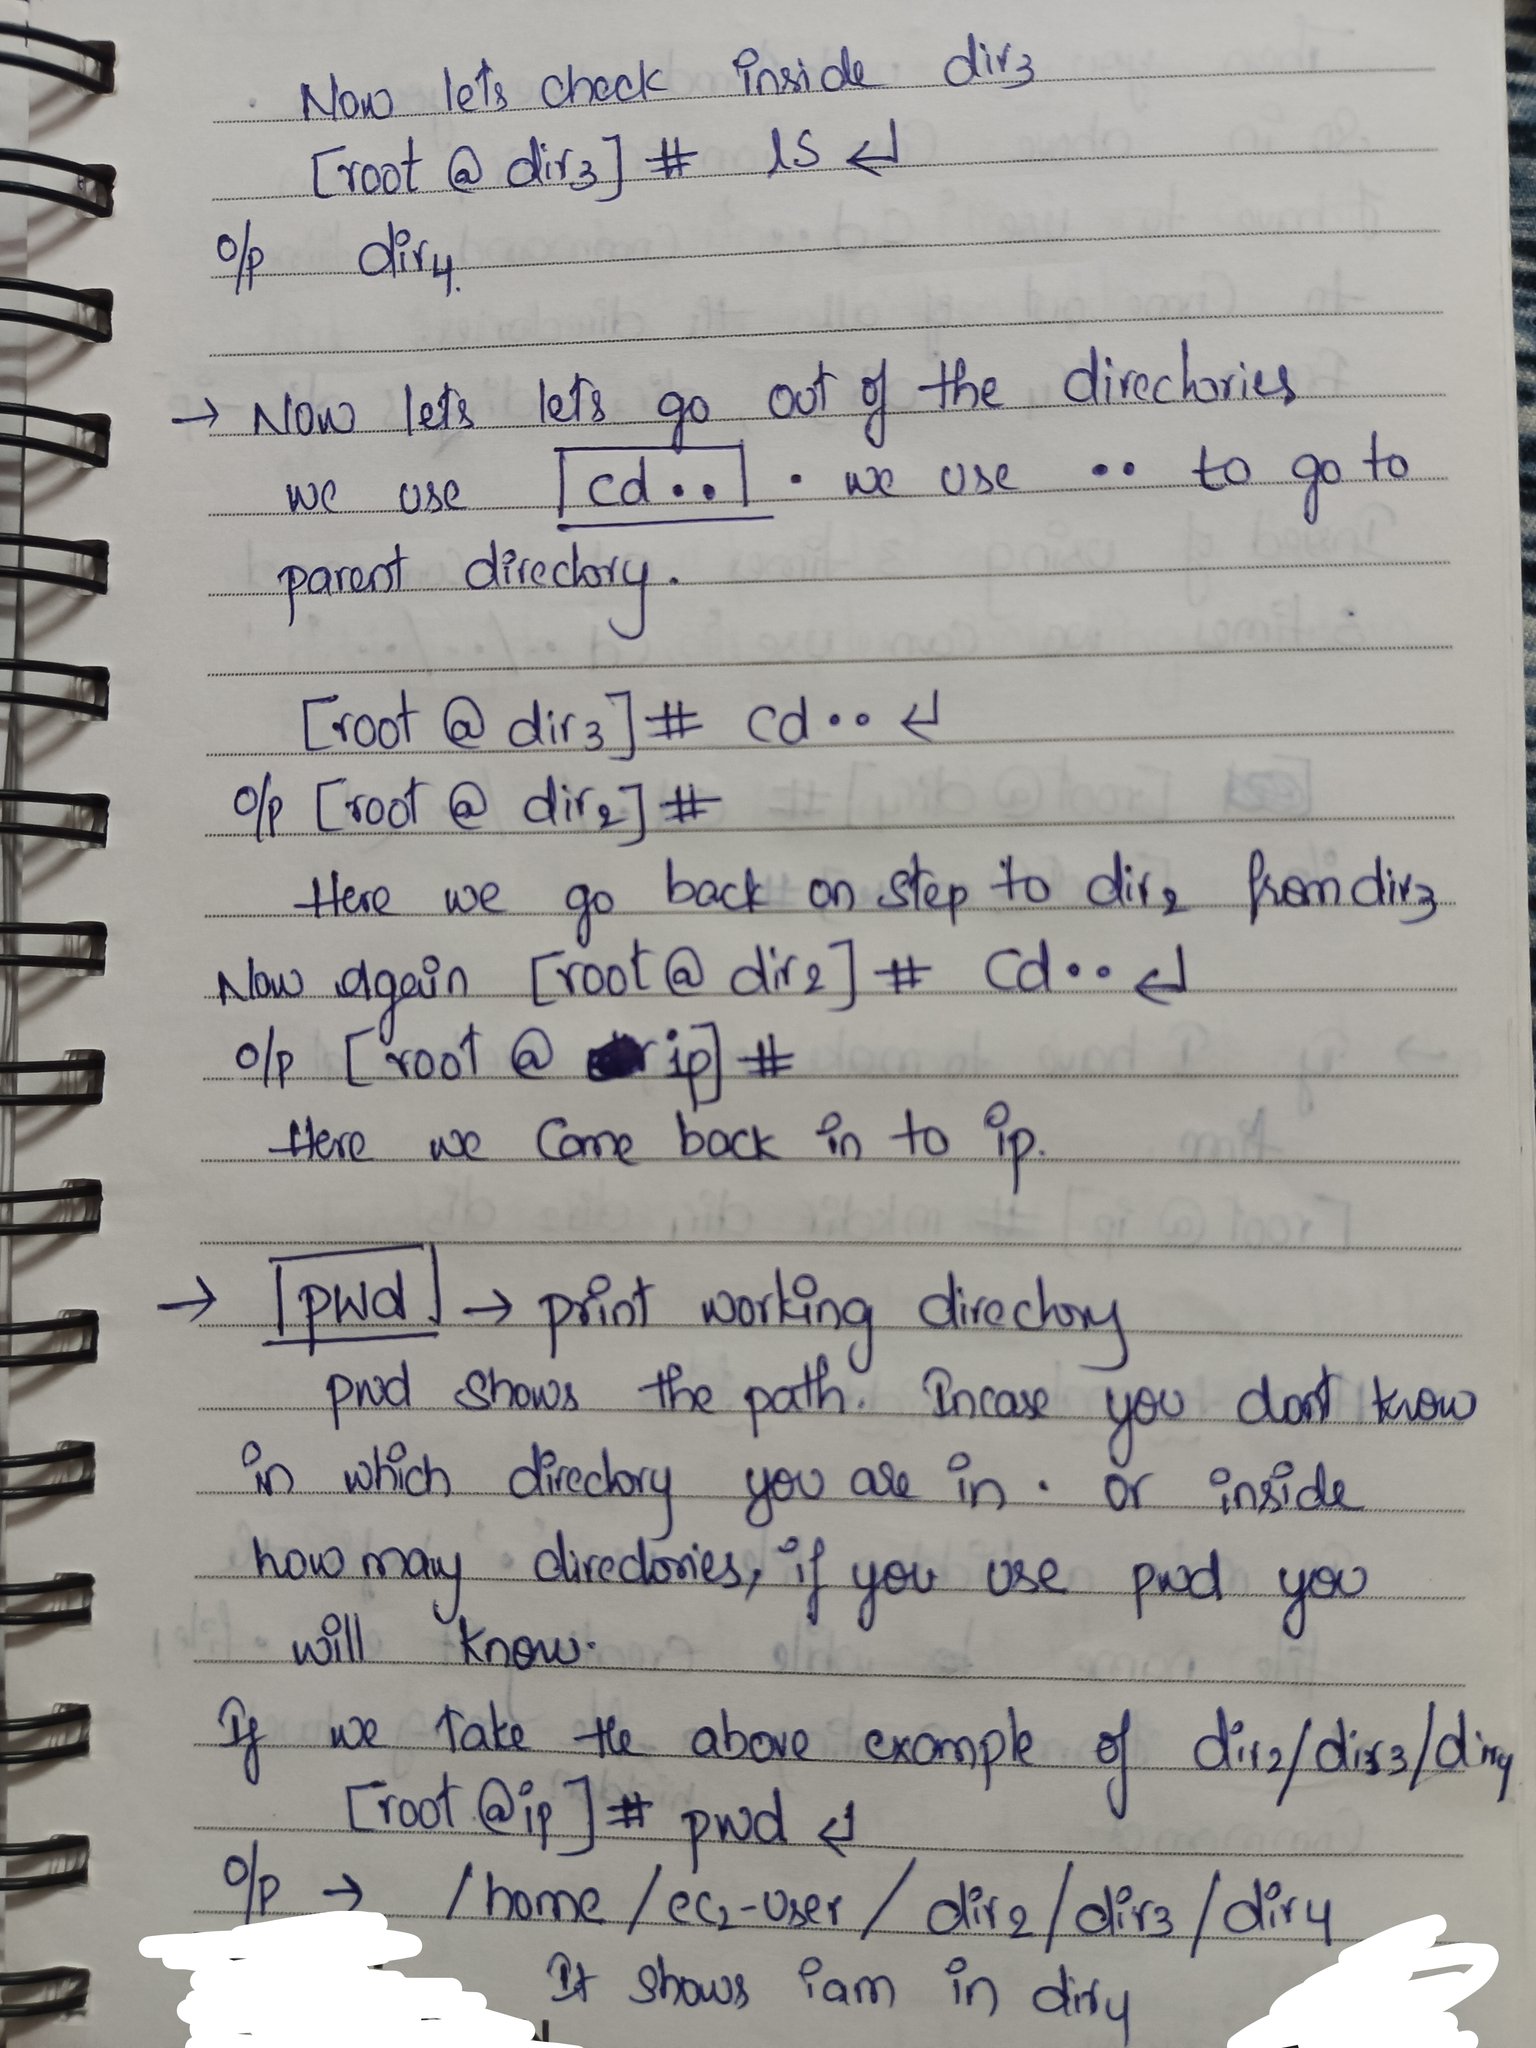 Now lets check inside dir3
[root @ dir3] # ls ↵
o/p dir4.
→ Now lets lets go out of the directories
we use cd.. . we use .. to go to
parent directory.
[root @ dir3] # cd.. ↵
o/p [root @ dir2] #
Here we go back on step to dir2 from dir3
Now again [root @ dir2] # cd.. ↵
o/p [root @ ip] #
Here we come back in to ip.
→ pwd → print working directory
pwd shows the path. Incase you dont know
in which directory you are in. or inside
how many directories, if you use pwd you
will know.
If we take the above example of dir2/dir3/dir4
[root @ip] # pwd ↵
o/p → /home/ec2-user/dir2/dir3/dir4
It shows iam in dir4